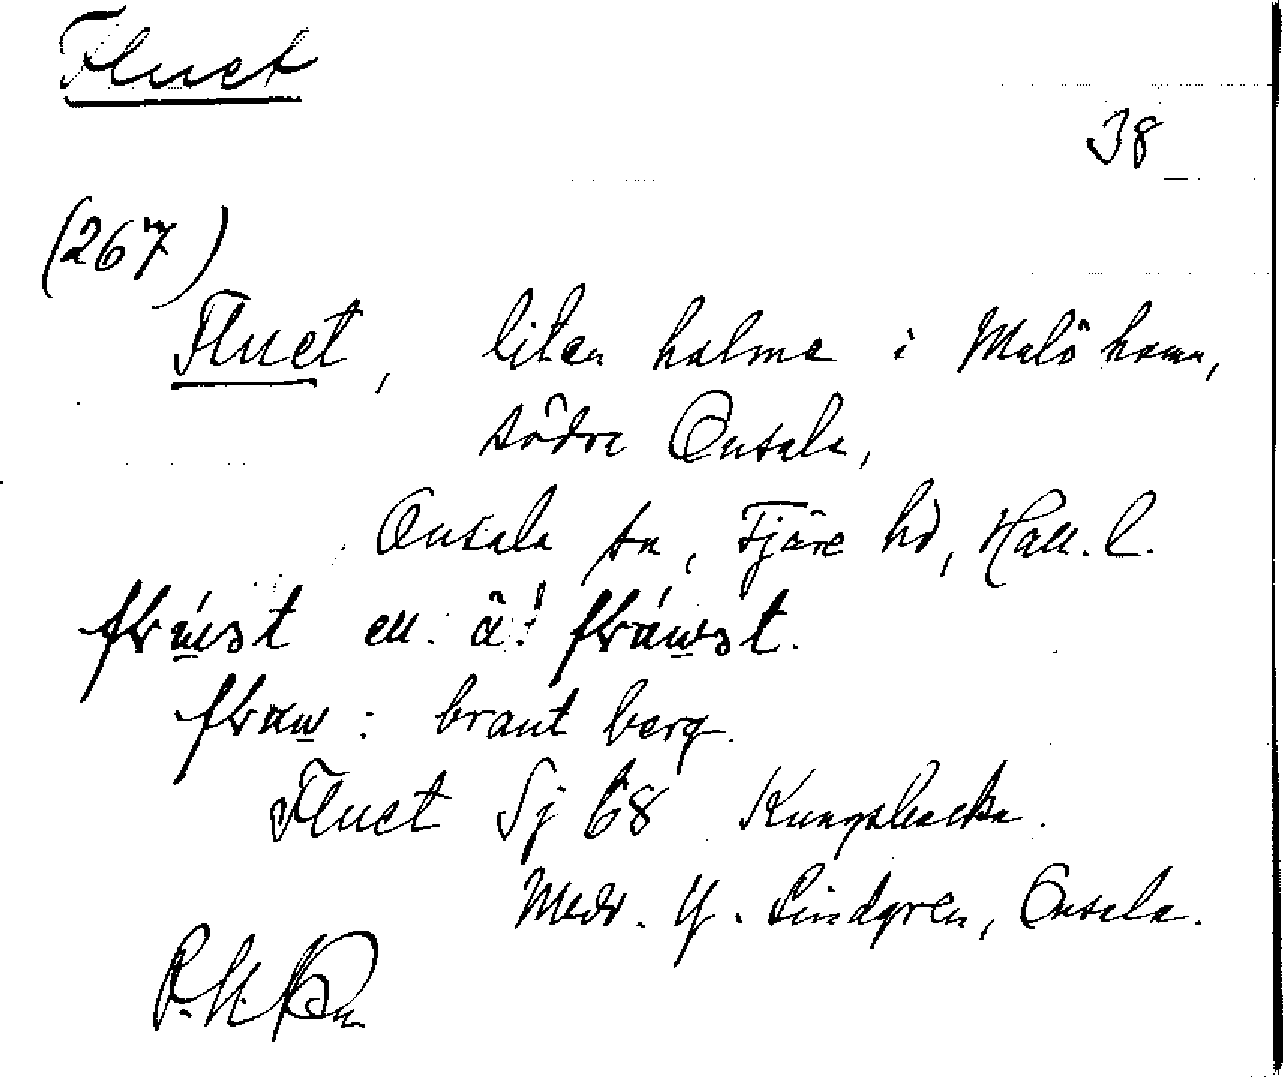 Fluet
38
(267)
Fluet, liten holme i Malö hamn,
södra Onsala,
Onsala sn, Fjäre hd, Hall. l.
ell. ä.
: brant berg.
Fluet Sj 68 Kungsbacka.
Medd. G. Lindgren, Onsala.